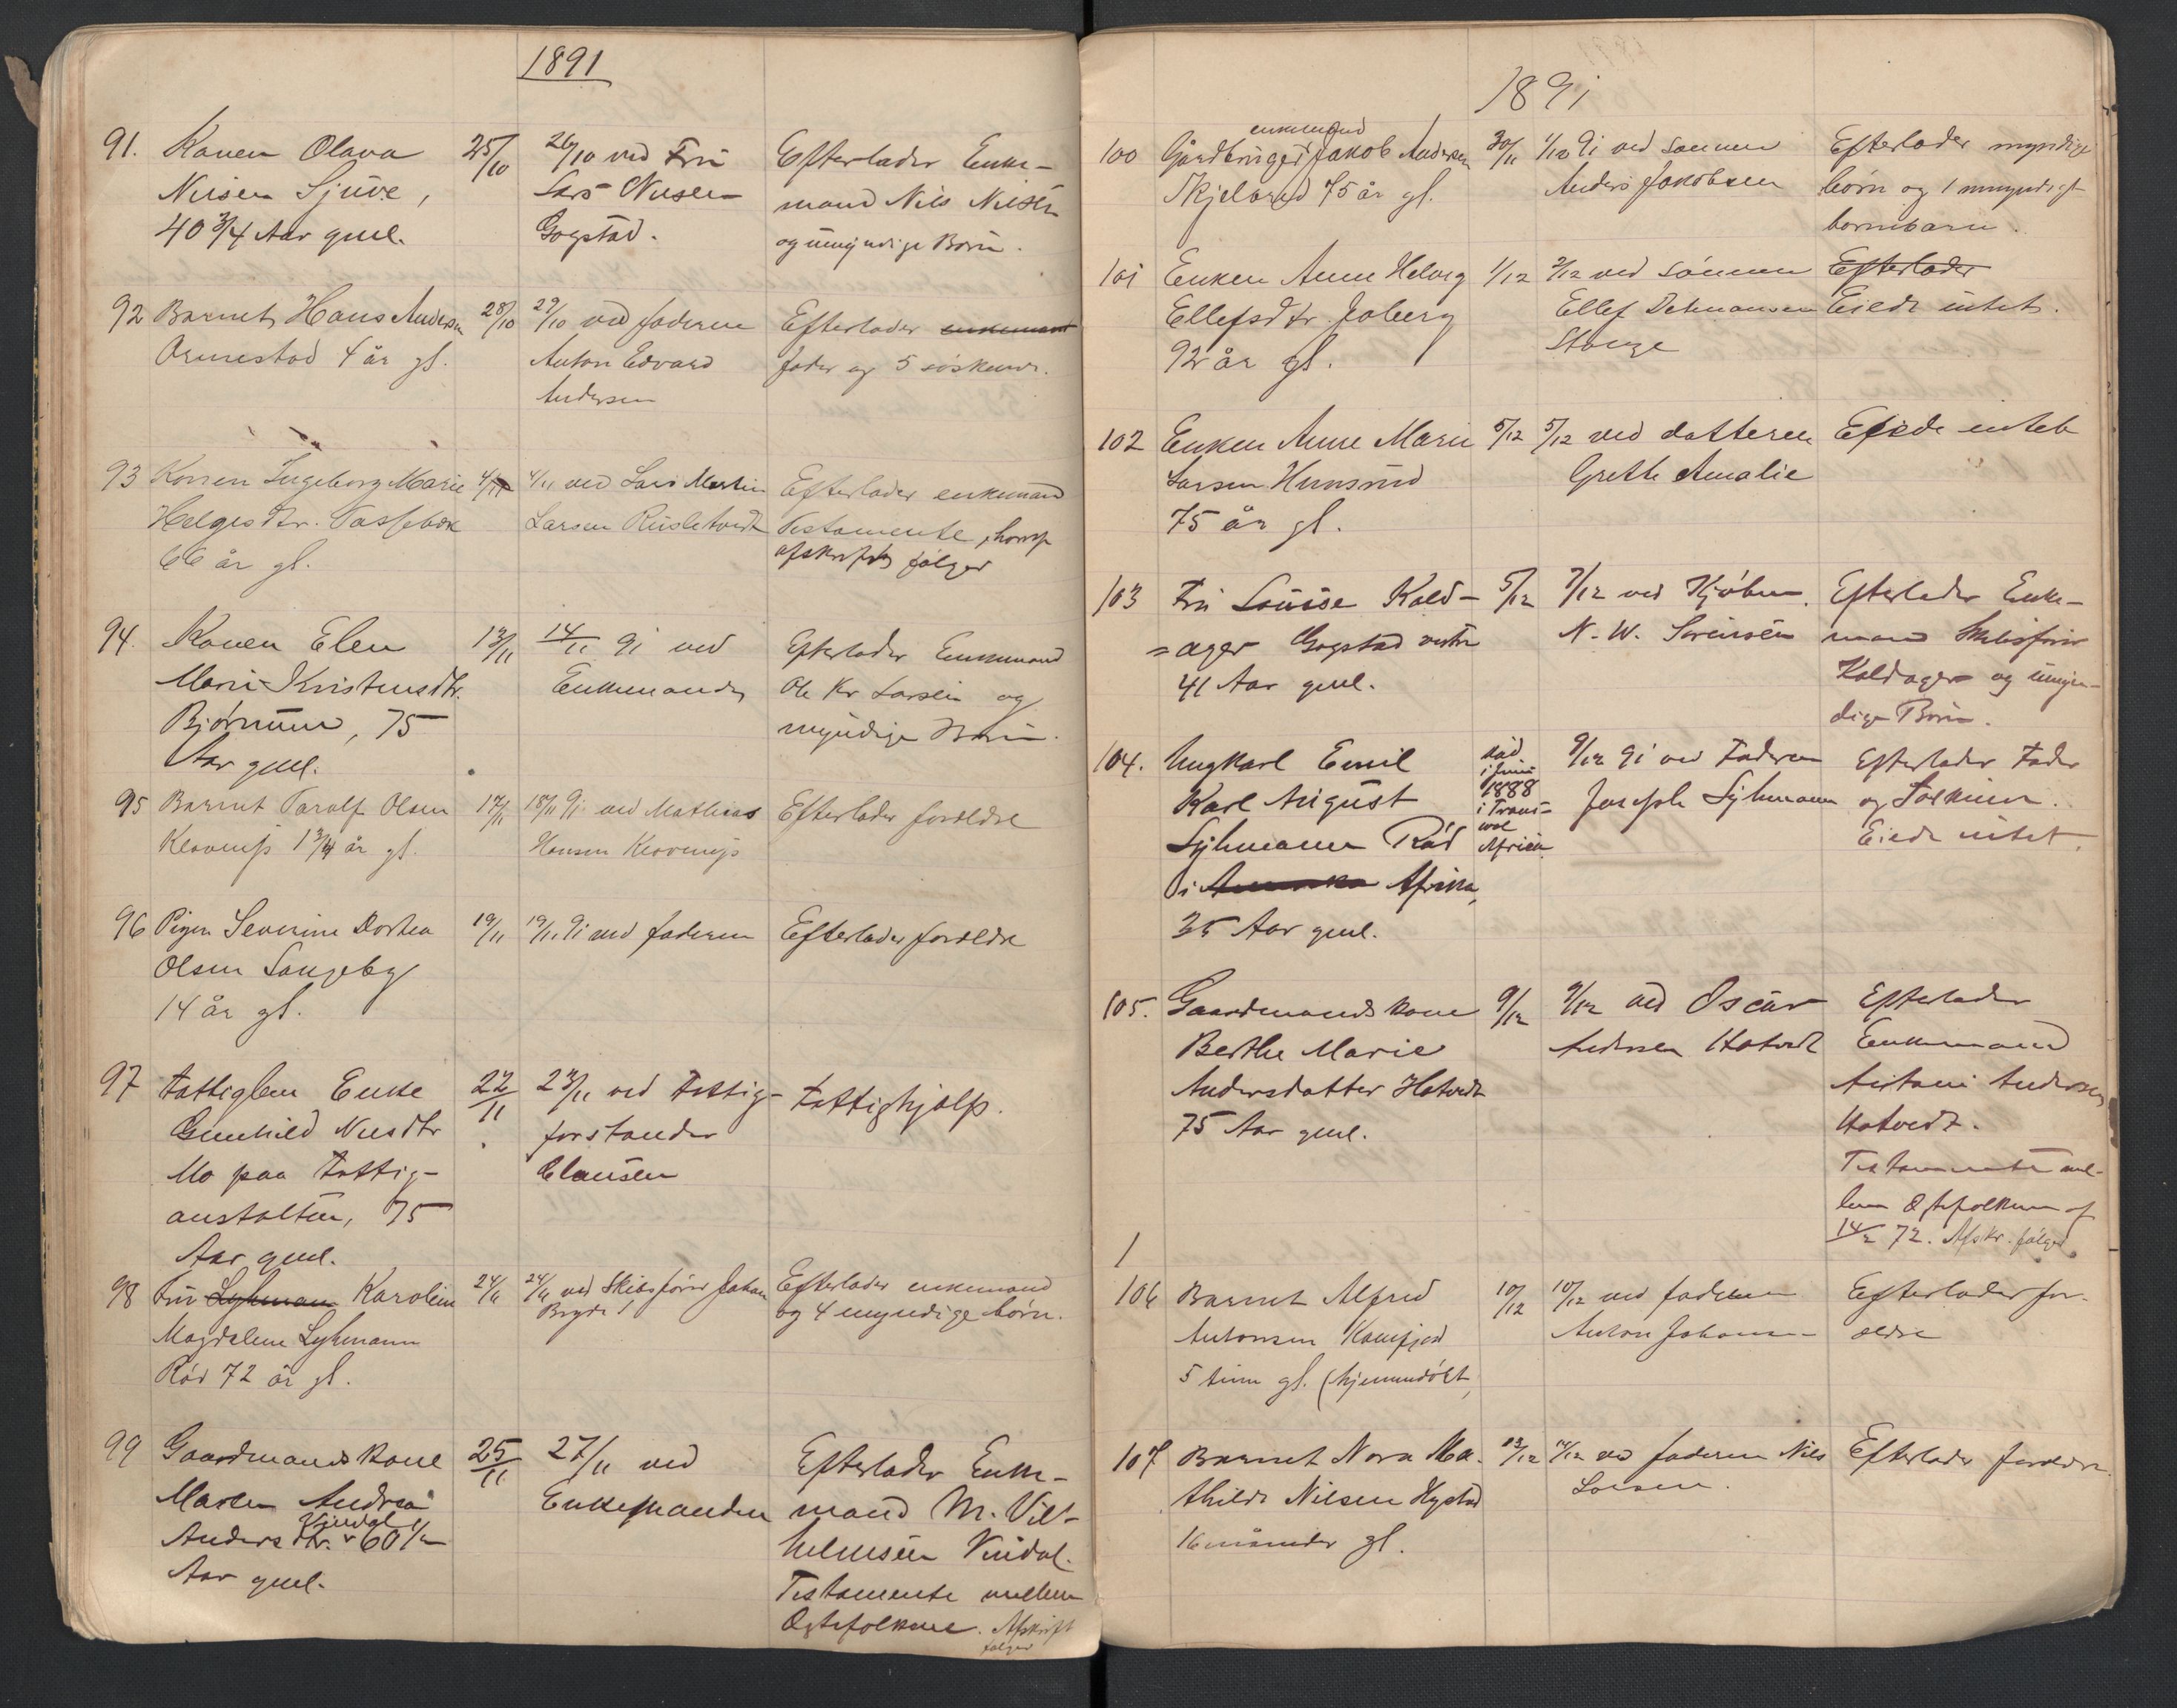 1891
91. Konen Olava 25/10 26/10 ved Fru Efterlader Enke-
Nilsen Sjuve, Lars Nilsen mand Nils Nilsen
40 3/4 Aar gml. Gogstad. og umyndige Børn.
92 Barnet Hans Andersen 28/10 29/10 ved faderen Efterlader enkemand
Ormestad 4 år gl. Anton Edvard fader og 5 søskende.
Andersen
93 Konen Ingeborg Marie 4/11 4/11 ved Lars Martin Efterlader enkemand
Helgesdtr. Larsen Testamente, hvoraf
66 år gl. afskrift følger
94. Konen Elen 13/11 14/11 91 ved Efterlader Enkemand
Marie Kristensdtr. Enkemanden Ole Kr Larsen og
Bjørnum, 75 myndige Børn.
Aar gml.
95 Barnet Taralf Olsen 17/11 18/11 91 ved Mathias Efterlader forældre
Klavenes 1 3/4 år gl. Hansen Klavenes
96 Pigen Severine Dorthea 19/11 19/11 91 ved faderen Efterlader forældre
Olsen Langeby
14 år gl.
97 Fattiglem Enke 22/11 23/11 ved Fattig- Fattighjælp.
Gunhild Nilsdtr forstander
Mo paa Fattig- Clausen
anstalten, 75
Aar gml.
98 Fru Lyhmann Karoline 24/11 24/11 ved Skibsfører Johan Efterlader enkemand
Bryde og 4 myndige børn.
Magdalene Lyhmann
Rød 72 år gl.
99 Gaardmandskone 25/11 27/11 ved Efterlader Enke-
Maren Andrea Enkemanden mand M. Vil-
Vindal
Andersdtr. 60 1/2 helmsen Vindal.
Aar gml. Testamente mellem
Ægtefolkene. Afskrift
følger
1891
enkemand
100 Gårdbruger Jakob Andersen 30/11 1/12 91 ved sønnen Efterlader myndige
Skjelbred 75 år gl. Anders Jakobsen børn og 1 umyndigt
barnebarn.
101 Enken Anne Helvig 1/12 2/12 ved sønnen Efterlader
Ellefsdtr. Jaberg Ellef Eiede intet.
92 år gl. Stange
102 Enken Anne Marie 5/12 5/12 ved datteren Eiede intet
Larsen Hunsrød Grethe Amalie
75 år gl.
103 Fru Louise Kold- 5/12 7/12 ved Kjøbm. Efterlader Enke-
=ager Gogstad vestre N. W. Sørensen mand Skibsfører
41 Aar gml. Koldager og umyn-
dige Børn.
104. Ungkarl Emil død i Juni 1888 i Transval Africa 9/12 91 ved Faderen Efterlader Fader
Karl August Joseph Lyhmann og Søskende.
Lyhmann Rød Eiede intet.
i Amerika Afrika,
35 Aar gml.
105. Gaardmandskone 9/12 9/12 ved Oscar Efterlader
Berthe Marie Andersen Hotvedt Enkemand
Andersdatter Hotvedt Andersen
75 Aar gml. Hotvedt.
Testamente mel-
lem Ægtefolkene af
14/2 72. Afskr. følger
1
106 Barnet Alfred 10/12 10/12 ved faderen Efterlader for-
Antonsen Kamfjord Anton Johansen ældre
5 timer gl. (hjemmedøbt,
107 Barnet Nora Ma- 13/12 14/12 ved faderen Nils Efterlader forældre.
thilde Nilsen Hystad Larsen.
16 måneder gl.